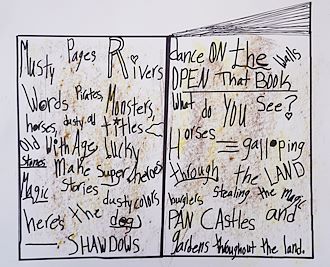 Musty Pages Rivers
Words Pirates, Monsters,
horses, dusty, old titles
Old With Age, Lucky
Stones make superheroes
Magic Stories dusty colors
here's the dogs
SHAWDOWS
dance ON the walls
OPEN That BOOK
What do YOU See?
Horses = galloping
through the LAND
burglers Stealing the magic
PAN CAStles and
gardens throughout the land.